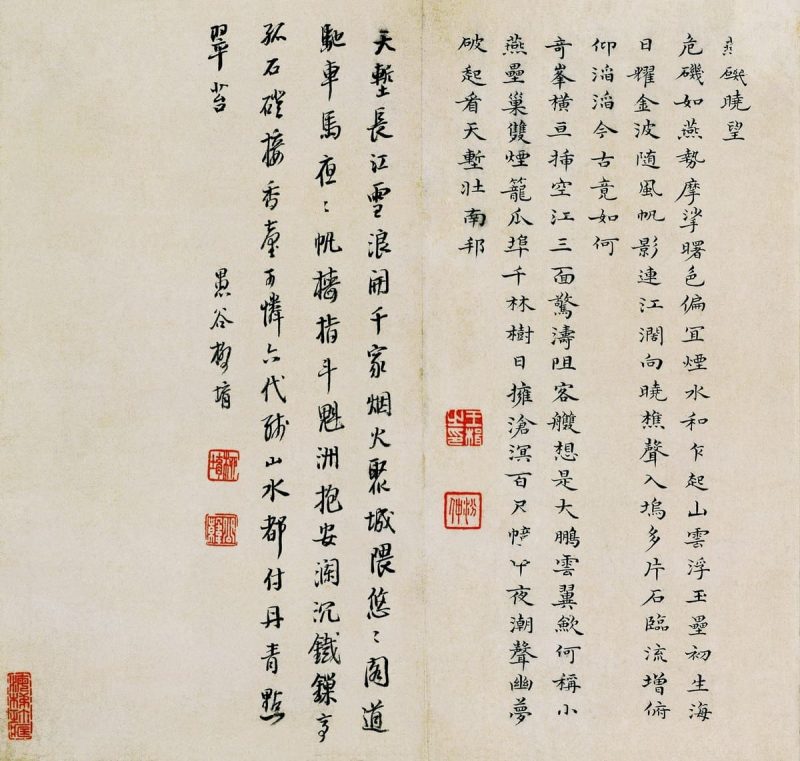 燕磯曉望
危磯如燕勢摩挲曙色偏宜煙水和乍起山雲浮玉壘初生海
日耀金波隨風帆影連江濶向曉樵聲入塢多片石臨流增俯
仰滔滔今古竟如何
奇峯橫亘插空江三面驚濤阻客艭想是大鵬雲翼歟何稱小
燕壘巢雙煙籠瓜埠千林樹日擁滄溟百尺幢午夜潮聲幽夢
破起看天塹壯南邦
天塹長江雪浪開千家烟火聚城隈悠〻閣道
馳車馬夜〻帆檣指斗魁洲抱安瀾沉鐵鏁亭
孤石磴接香臺可憐六代殘山水都付丹青點
翠苔
愚谷柳堉